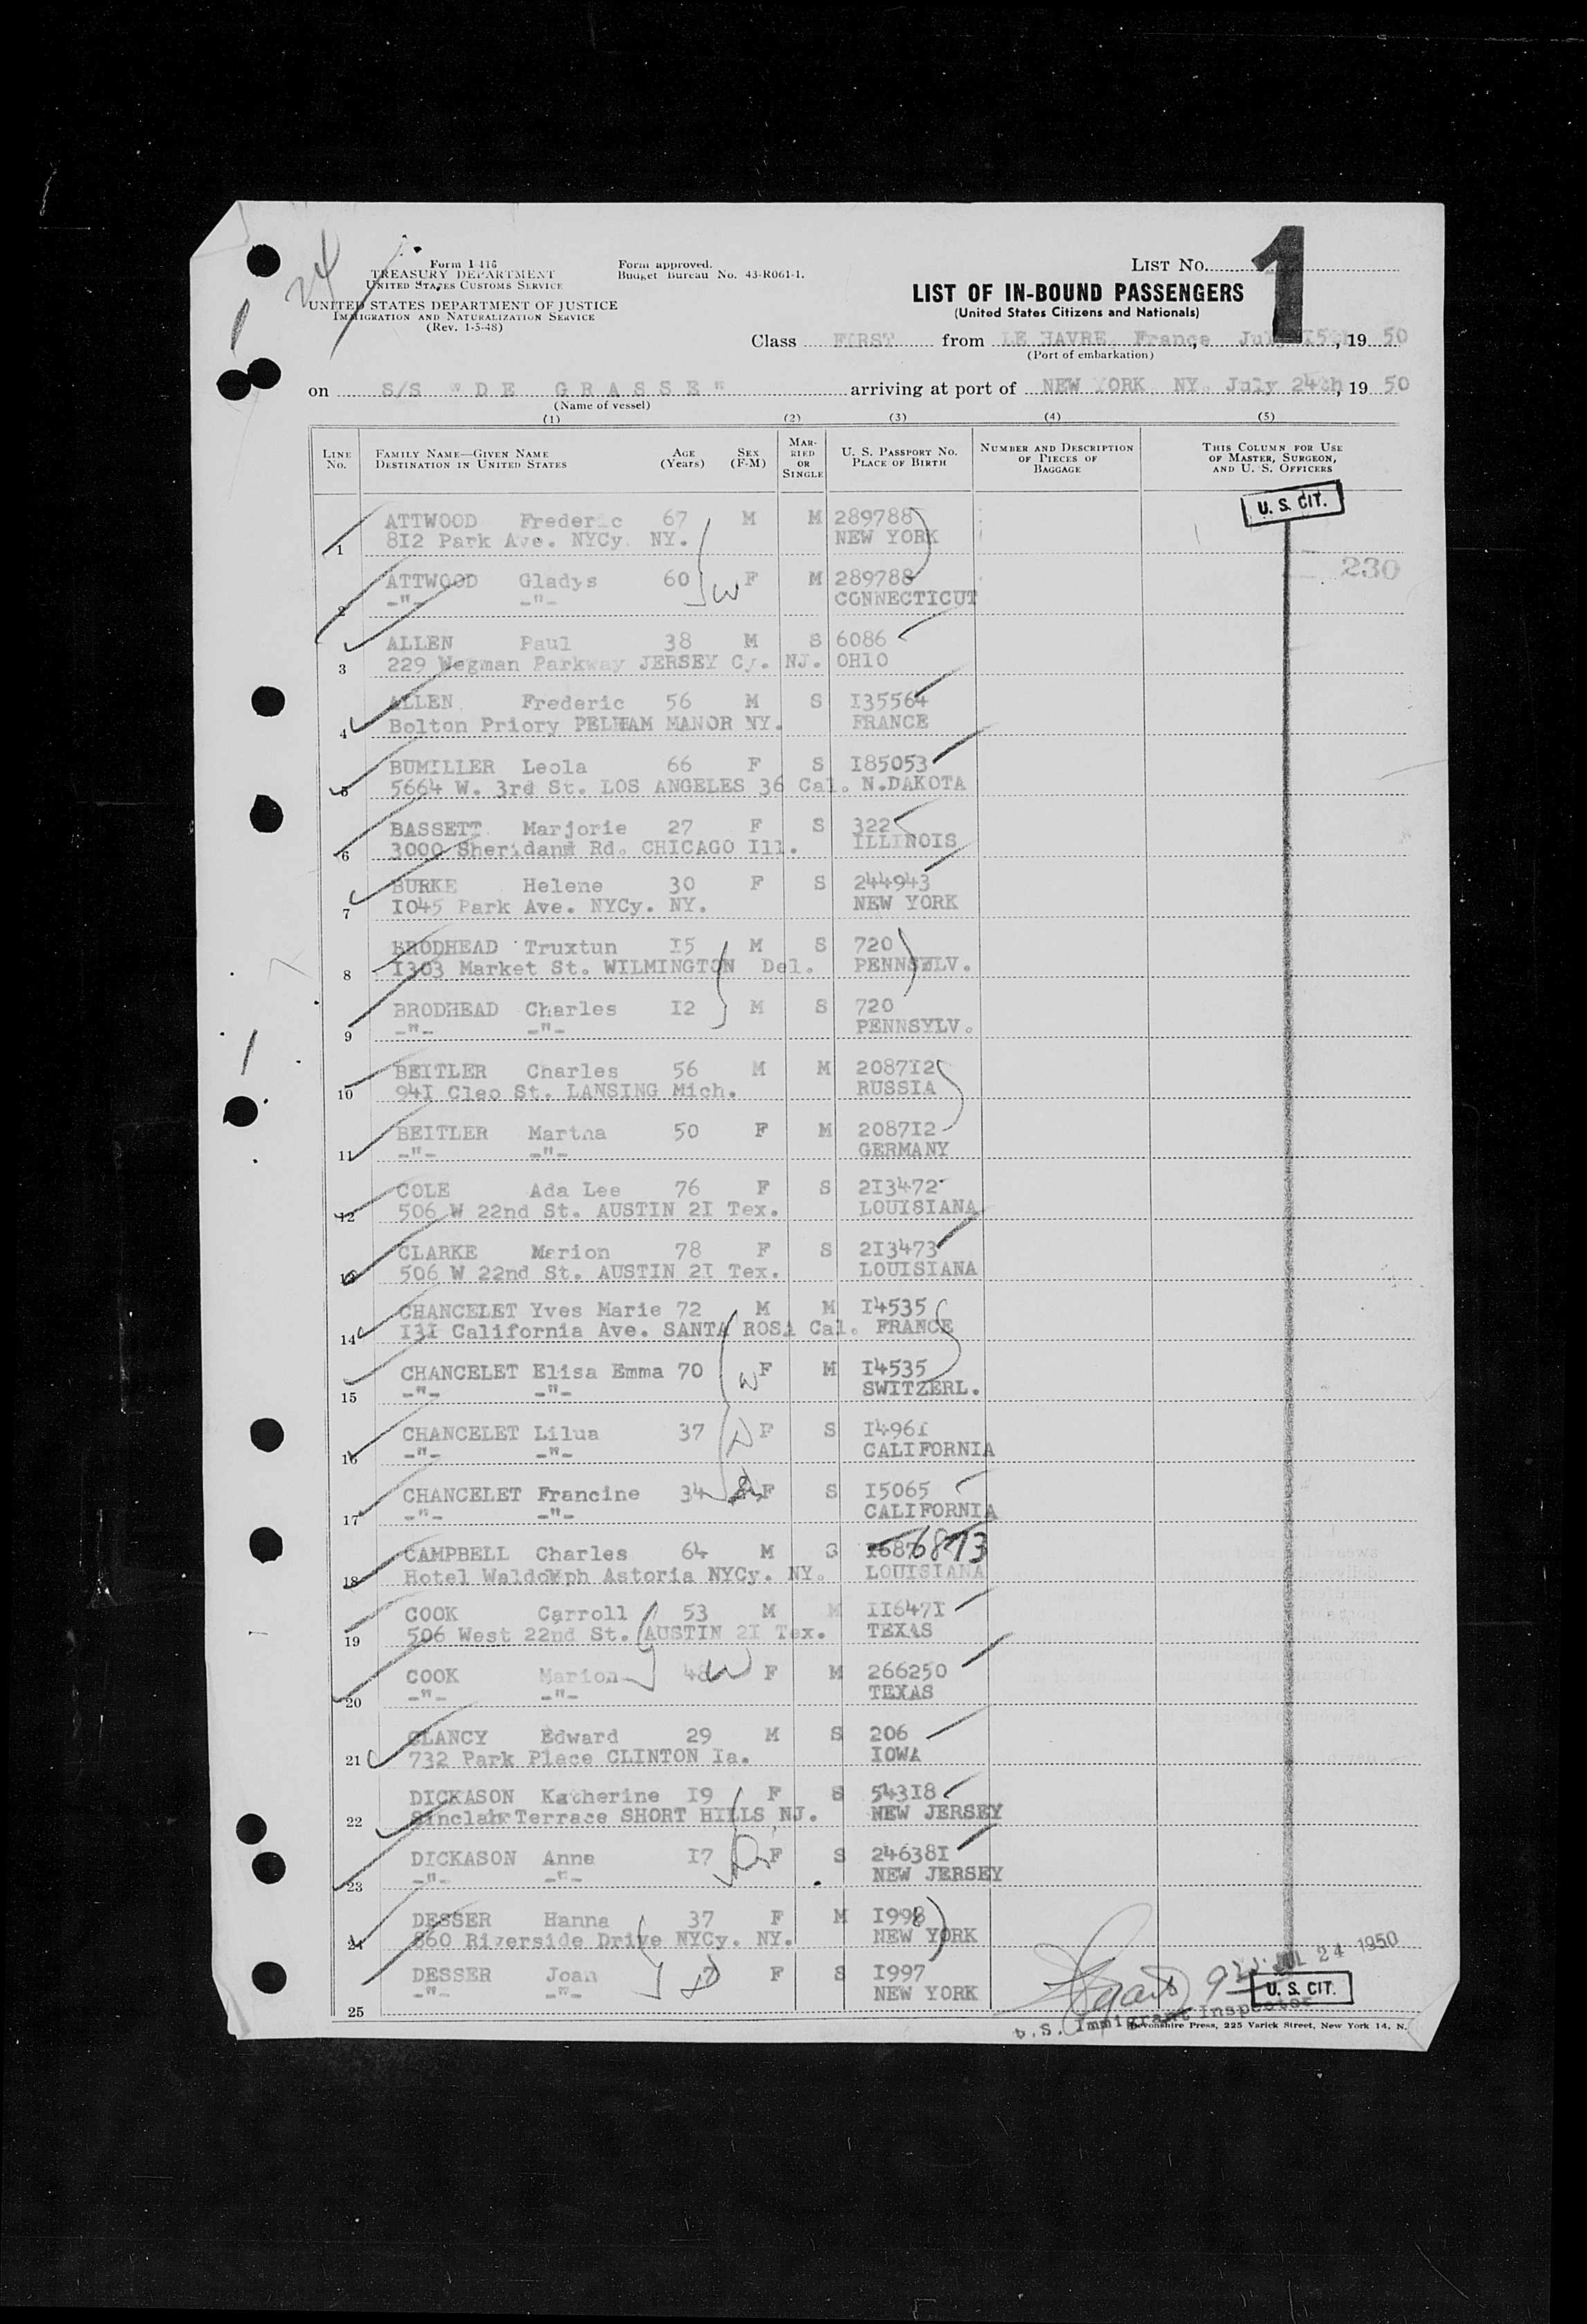 24
Form I-416
TREASURY DEPARTMENT
UNITED STATES CUSTOMS SERVICE
UNITED STATES DEPARTMENT OF JUSTICE
IMMIGRATION AND NATURALIZATION SERVICE
(Rev. 1-5-48)
Form approved.
Budget Bureau No. 43-R061-1.
LIST No. 1
LIST OF IN-BOUND PASSENGERS
(United States Citizens and Nationals)
Class FIRST from LE HAVRE, France, July 15th, 19 50
(Port of embarkation)
on S/S "DE GRASSE" arriving at port of NEW YORK, NY. July 24th, 19 50
(Name of vessel)
(1) (2) (3) (4) (5)
LINE No. FAMILY NAME—GIVEN NAME DESTINATION IN UNITED STATES AGE (Years) SEX (F-M) MARRIED OR SINGLE U. S. PASSPORT No. PLACE OF BIRTH NUMBER AND DESCRIPTION OF PIECES OF BAGGAGE THIS COLUMN FOR USE OF MASTER, SURGEON, AND U. S. OFFICERS
U. S. CIT.
ATTWOOD Frederic 67 M M 289788
1 812 Park Ave. NYCy. NY. NEW YORK
230
ATTWOOD Gladys 60 W F M 289788
2 -"- -"- CONNECTICUT
ALLEN Paul 38 M S 6086
3 229 Wegman Parkway JERSEY Cy. NJ. OHIO
ALLEN Frederic 56 M S I35564
4 Bolton Priory PELHAM MANOR NY. FRANCE
BUMILLER Leola 66 F S I85053
5 5664 W. 3rd St. LOS ANGELES 36 Cal. N.DAKOTA
BASSETT Marjorie 27 F S 322
6 3000 Sheridand Rd. CHICAGO Ill. ILLINOIS
BURKE Helene 30 F S 244943
7 I045 Park Ave. NYCy. NY. NEW YORK
BRODHEAD Truxtun I5 M S 720
8 I303 Market St. WILMINGTON Del. PENNSYLV.
BRODHEAD Charles I2 M S 720
9 -"- -"- PENNSYLV.
BEITLER Charles 56 M M 2087I2
10 94I Cleo St. LANSING Mich. RUSSIA
BEITLER Martha 50 F M 2087I2
11 -"- -"- GERMANY
COLE Ada Lee 76 F S 2I3472
12 506 W 22nd St. AUSTIN 2I Tex. LOUISIANA
CLARKE Marion 78 F S 2I3473
13 506 W 22nd St. AUSTIN 2I Tex. LOUISIANA
CHANCELET Yves Marie 72 M M I4535
14 I3I California Ave. SANTA ROSA Cal. FRANCE
CHANCELET Elisa Emma 70 W F M I4535
15 -"- -"- SWITZERL.
CHANCELET Lilua 37 D F S I496I
16 -"- -"- CALIFORNIA
CHANCELET Francine 34 D F S I5065
17 -"- -"- CALIFORNIA
CAMPBELL Charles 64 M S 6873
18 Hotel Waldorph Astoria NYCy. NY. LOUISIANA
COOK Carroll 53 M M II647I
19 506 West 22nd St. AUSTIN 2I Tex. TEXAS
COOK Marion 48 W F M 266250
20 -"- -"- TEXAS
CLANCY Edward 29 M S 206
21 732 Park Place CLINTON Ia. IOWA
DICKASON Katherine I9 F S 543I8
22 Sinclair Terrace SHORT HILLS, NJ. NEW JERSEY
DICKASON Anne I7 F S 24638I
23 -"- -"- NEW JERSEY
DESSER Hanna 37 F M I998
24 860 Riverside Drive NYCy. NY. NEW YORK
DESSER Joan 7 D F S I997
25 -"- -"- NEW YORK
JUL 24 1950
U. S. CIT.
U.S. Immigrant Inspector
Devonshire Press, 225 Varick Street, New York 14, N.